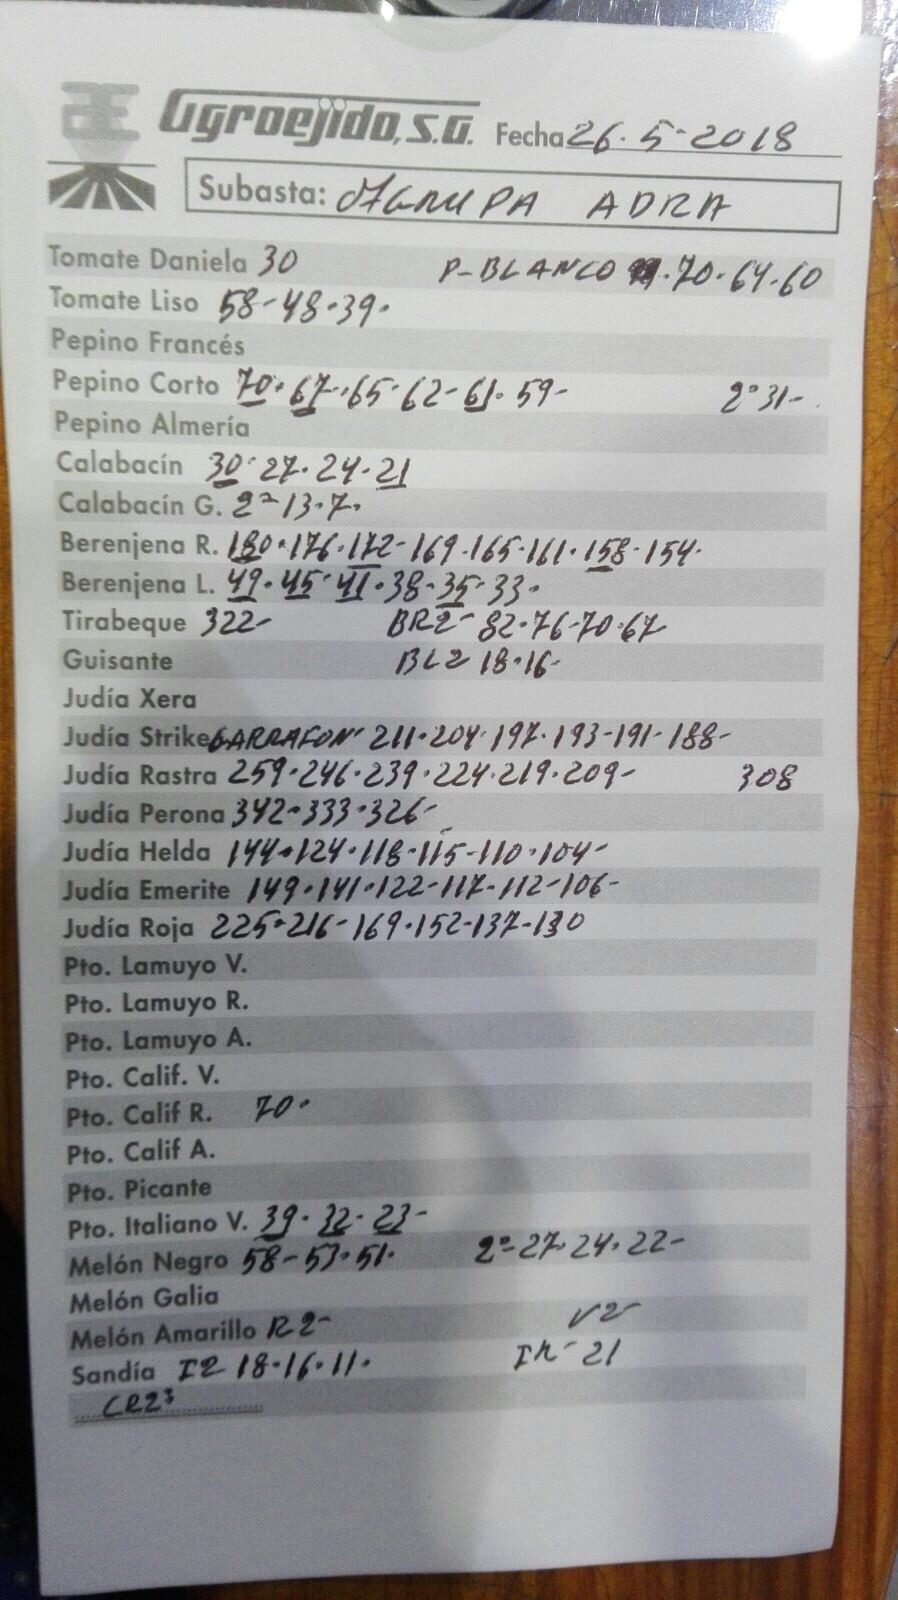 Agroejido, S.A. Fecha 26-5-2018
Subasta: AGRUPA ADRA
Tomate Daniela 30 P-BLANCO 70-64-60
Tomate Liso 58-48-39-
Pepino Francés
Pepino Corto 70-67-65-62-61-59- 2ª31-
Pepino Almería
Calabacín 30-27-24-21
Calabacín G. 2ª-13-7-
Berenjena R. 180-176-172-169-165-161-158-154-
Berenjena L. 49-45-41-38-35-33-
Tirabeque 322- BR2-82-76-70-67-
Guisante BL2 18-16-
Judía Xera
Judía Strike GARRAFON 211-204-197-193-191-188-
Judía Rastra 259-246-239-224-219-209- 308
Judía Perona 342-333-326-
Judía Helda 144-124-118-115-110-104-
Judía Emerite 149-141-122-117-112-106-
Judía Roja 225-216-169-152-137-130
Pto. Lamuyo V.
Pto. Lamuyo R.
Pto. Lamuyo A.
Pto. Calif. V.
Pto. Calif R. 70-
Pto. Calif A.
Pto. Picante
Pto. Italiano V. 39-32-23-
Melón Negro 58-53-51- 2ª-27-24-22-
Melón Galia
Melón Amarillo R2- V2-
Sandía I2 18-16-11- 21